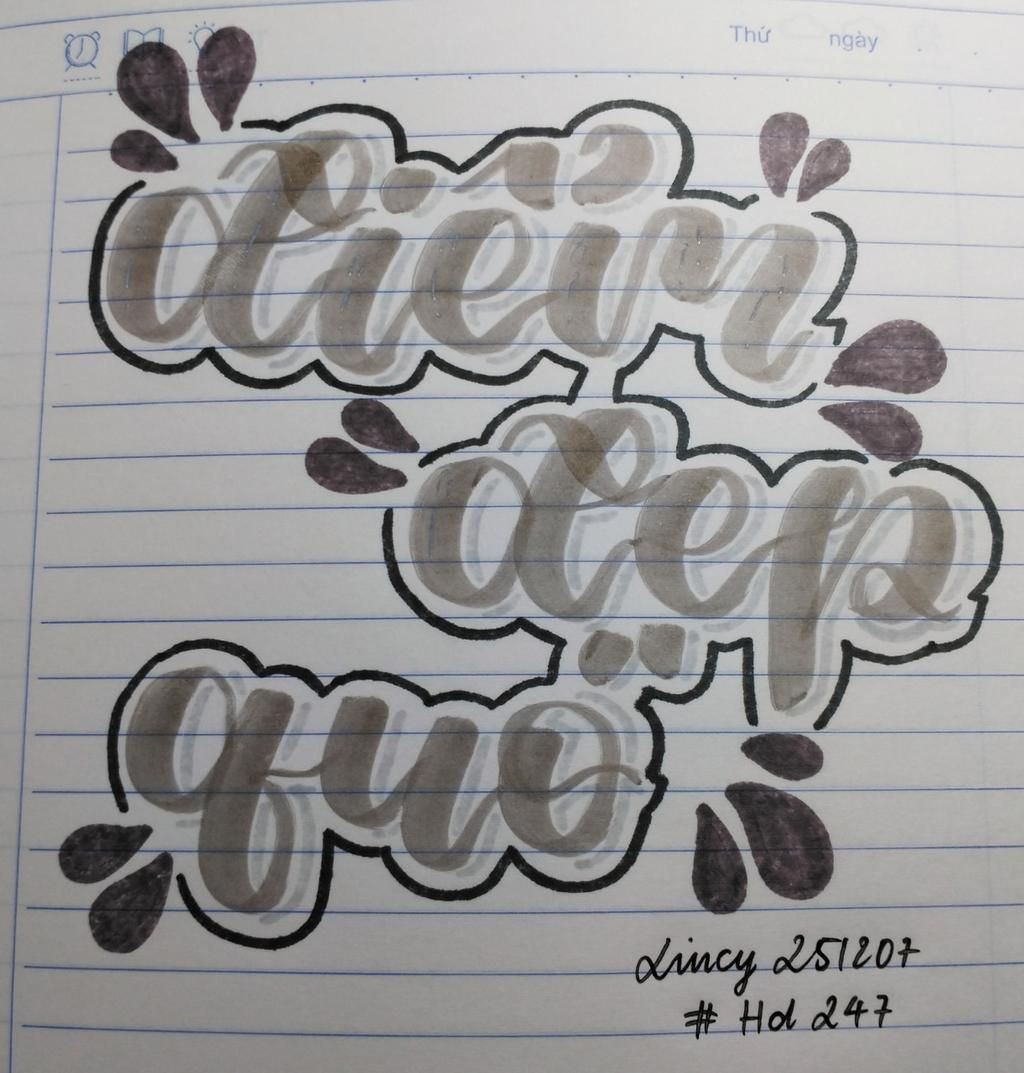 Thứ ngày
điểm
đẹp
quó
Lincy 251207
# Hd 247